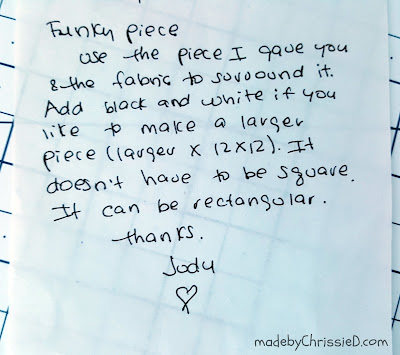 Funky piece
use the piece I gave you
& the fabric to suroound it.
Add black and white if you
like to make a larger
piece (larger x 12x12). It
doesn't have to be square.
It can be rectangular.
thanks.
Judy
madebyChrissieD.com